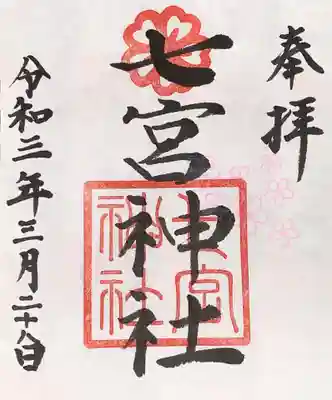 奉拝
七宮神社
七宮神社
令和三年三月二十八日